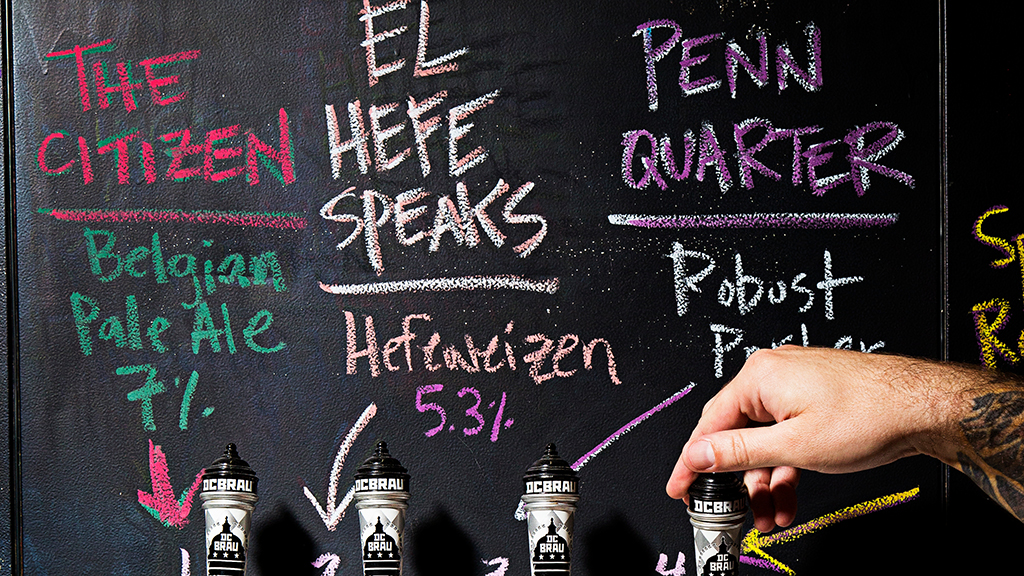 THE
CITIZEN
Belgian
Pale Ale
7%
EL
HEFE
SPEAKS
Hefeweizen
5.3%
PENN
QUARTER
Robust
DCBRAU
DC
BRAU
DCBRAU
DC
BRAU
DCBRAU
DC
BRAU
DCBRAU
DC
BRAU
4